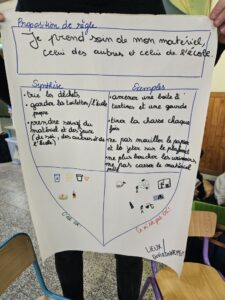 Proposition de règle
Je prend soin de mon matériel,
celui des autres et celui de l'école.
Synthèse
• trie les déchets
• garder la toilette/l'école
propre
• prendre soin du
matériel et des jeux
(de soi, des autres et de
l'école)
Exemples
• amener une boite à
tartines et une gourde
• tirer la chasse chaque
fois
• ne pas mouiller le papier
et le jeter sur le plafond
• ne plus boucher les urinoirs
• ne pas casser le matériel
C'est OK!
Ce n'est pas OK!
LIEUX/